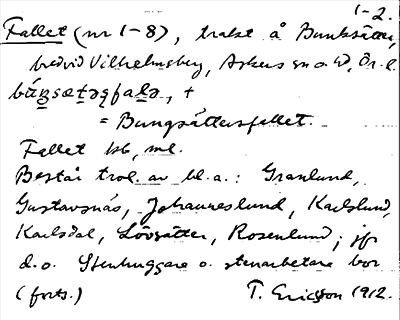 1-2.
Fallet (nr 1-8), trakt å Bunksätter,
bredvid Vilhelmsberg, Askers sn o. hd, Ör. l.
= Bungsättersfallet.
Fallet bb, ml.
Består trol. av bl.a.: Granlund,
Gustavsnäs, Johanneslund, Karlslund,
Karlsdal, Lövsätter, Rosenlund; jfr
d.o. Stenhuggare o. stenarbetare bor
(forts.) T. Ericsson 1912.